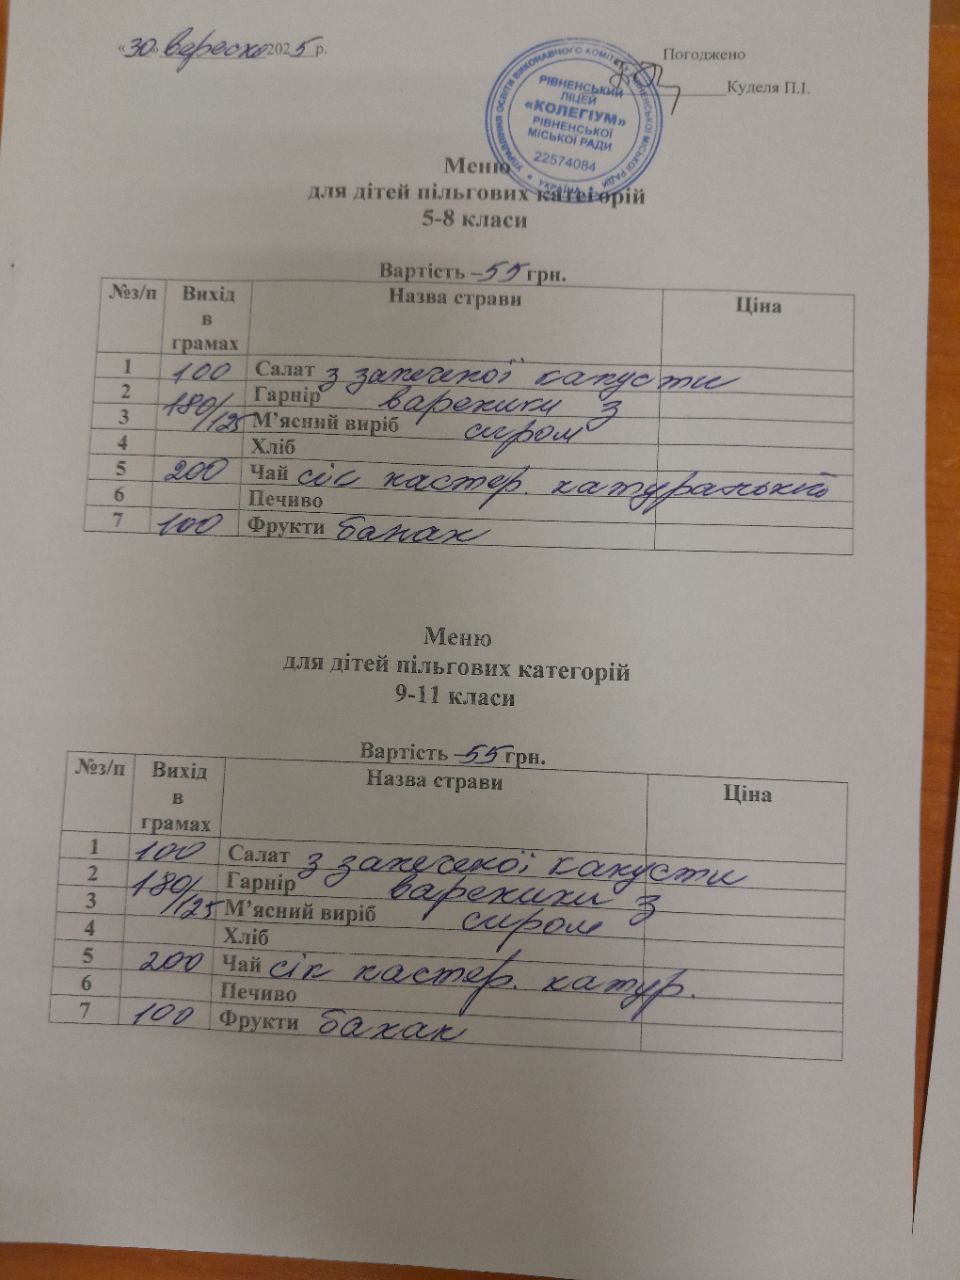 «30» вересня 2025 р.
Погоджено
Куделя П.І.
УПРАВЛІННЯ ОСВІТИ ВИКОНАВЧОГО КОМІТЕТУ РІВНЕНСЬКОЇ МІСЬКОЇ РАДИ * УКРАЇНА *
РІВНЕНСЬКИЙ
ЛІЦЕЙ
«КОЛЕГІУМ»
РІВНЕНСЬКОЇ
МІСЬКОЇ РАДИ
22574084
Меню
для дітей пільгових категорій
5-8 класи
Вартість – 55 грн.
№з/п Вихід в грамах Назва страви Ціна
1 100 Салат з запеченої капусти
2 180/125 Гарнір вареники з
3 М’ясний виріб сиром
4 Хліб
5 200 Чай сік пастер. натуральний
6 Печиво
7 100 Фрукти банан
Меню
для дітей пільгових категорій
9-11 класи
Вартість – 55 грн.
№з/п Вихід в грамах Назва страви Ціна
1 100 Салат з запеченої капусти
2 180/125 Гарнір вареники з
3 М’ясний виріб сиром
4 Хліб
5 200 Чай сік пастер. натур.
6 Печиво
7 100 Фрукти банан